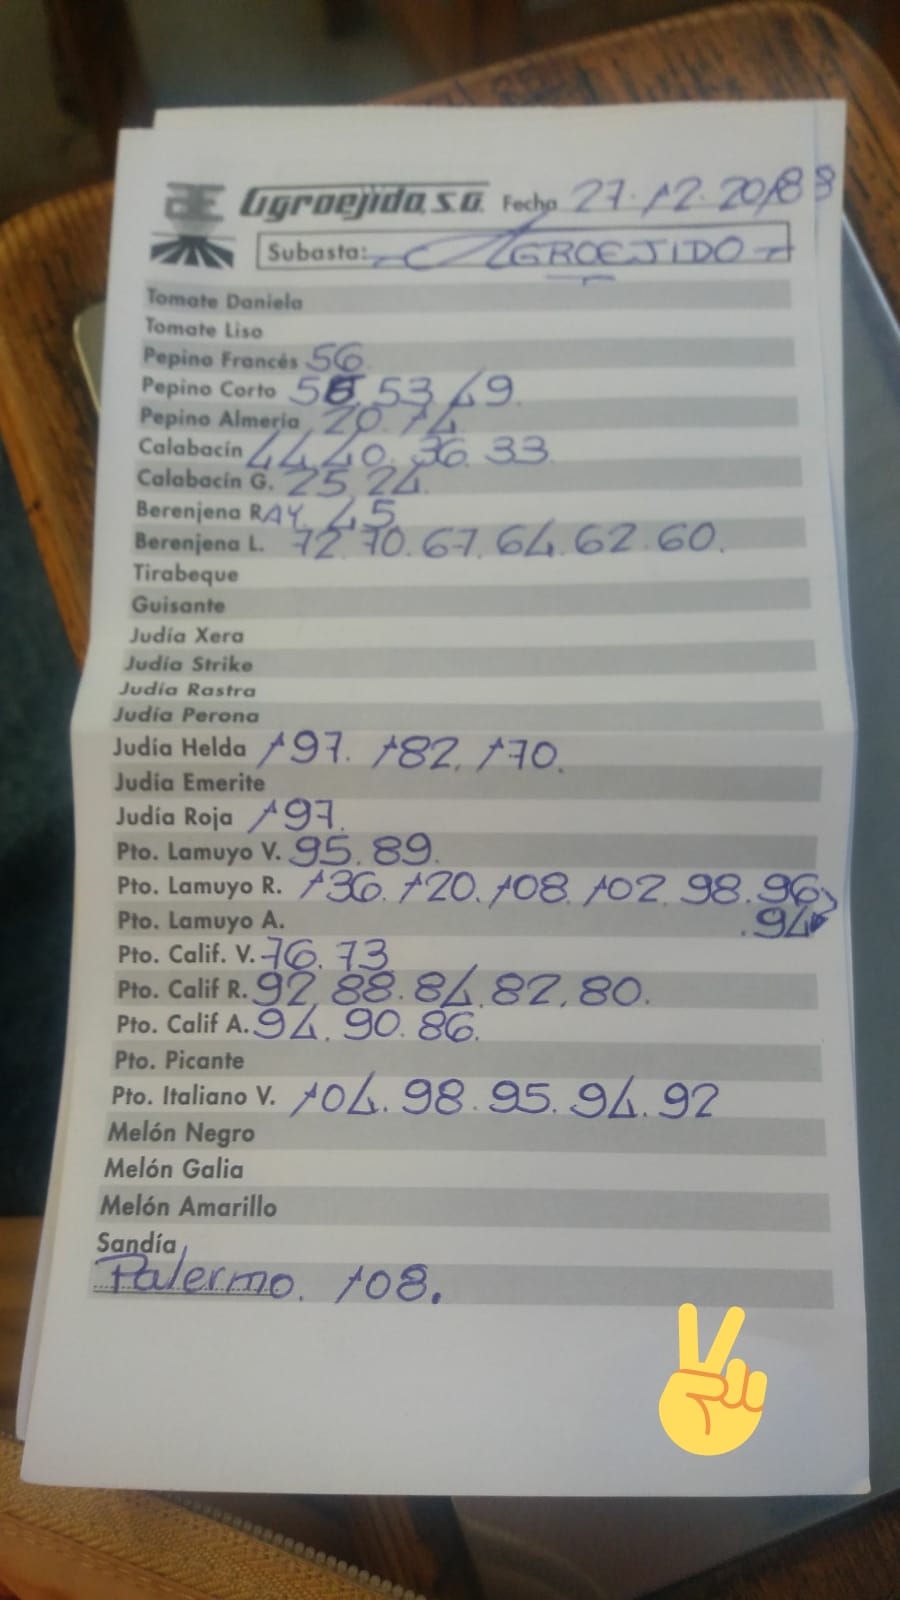 Agroejido, S.A. Fecha 27.12.2018
Subasta: AGROEJIDO
Tomate Daniela
Tomate Liso
Pepino Francés 56
Pepino Corto 55. 53. 49.
Pepino Almería 20. 14.
Calabacín 44. 40. 36. 33
Calabacín G. 25. 24.
Berenjena RAY. 45
Berenjena L. 72. 70. 67. 64. 62. 60.
Tirabeque
Guisante
Judía Xera
Judía Strike
Judía Rastra
Judía Perona
Judía Helda 197. 182. 170.
Judía Emerite
Judía Roja 197.
Pto. Lamuyo V. 95. 89.
Pto. Lamuyo R. 136. 120. 108. 102. 98. 96
.94
Pto. Lamuyo A.
Pto. Calif. V. 76. 73
Pto. Calif R. 92. 88. 84. 82. 80.
Pto. Calif A. 94. 90. 86.
Pto. Picante
Pto. Italiano V. 104. 98. 95. 94. 92
Melón Negro
Melón Galia
Melón Amarillo
Sandía
Palermo. 108.